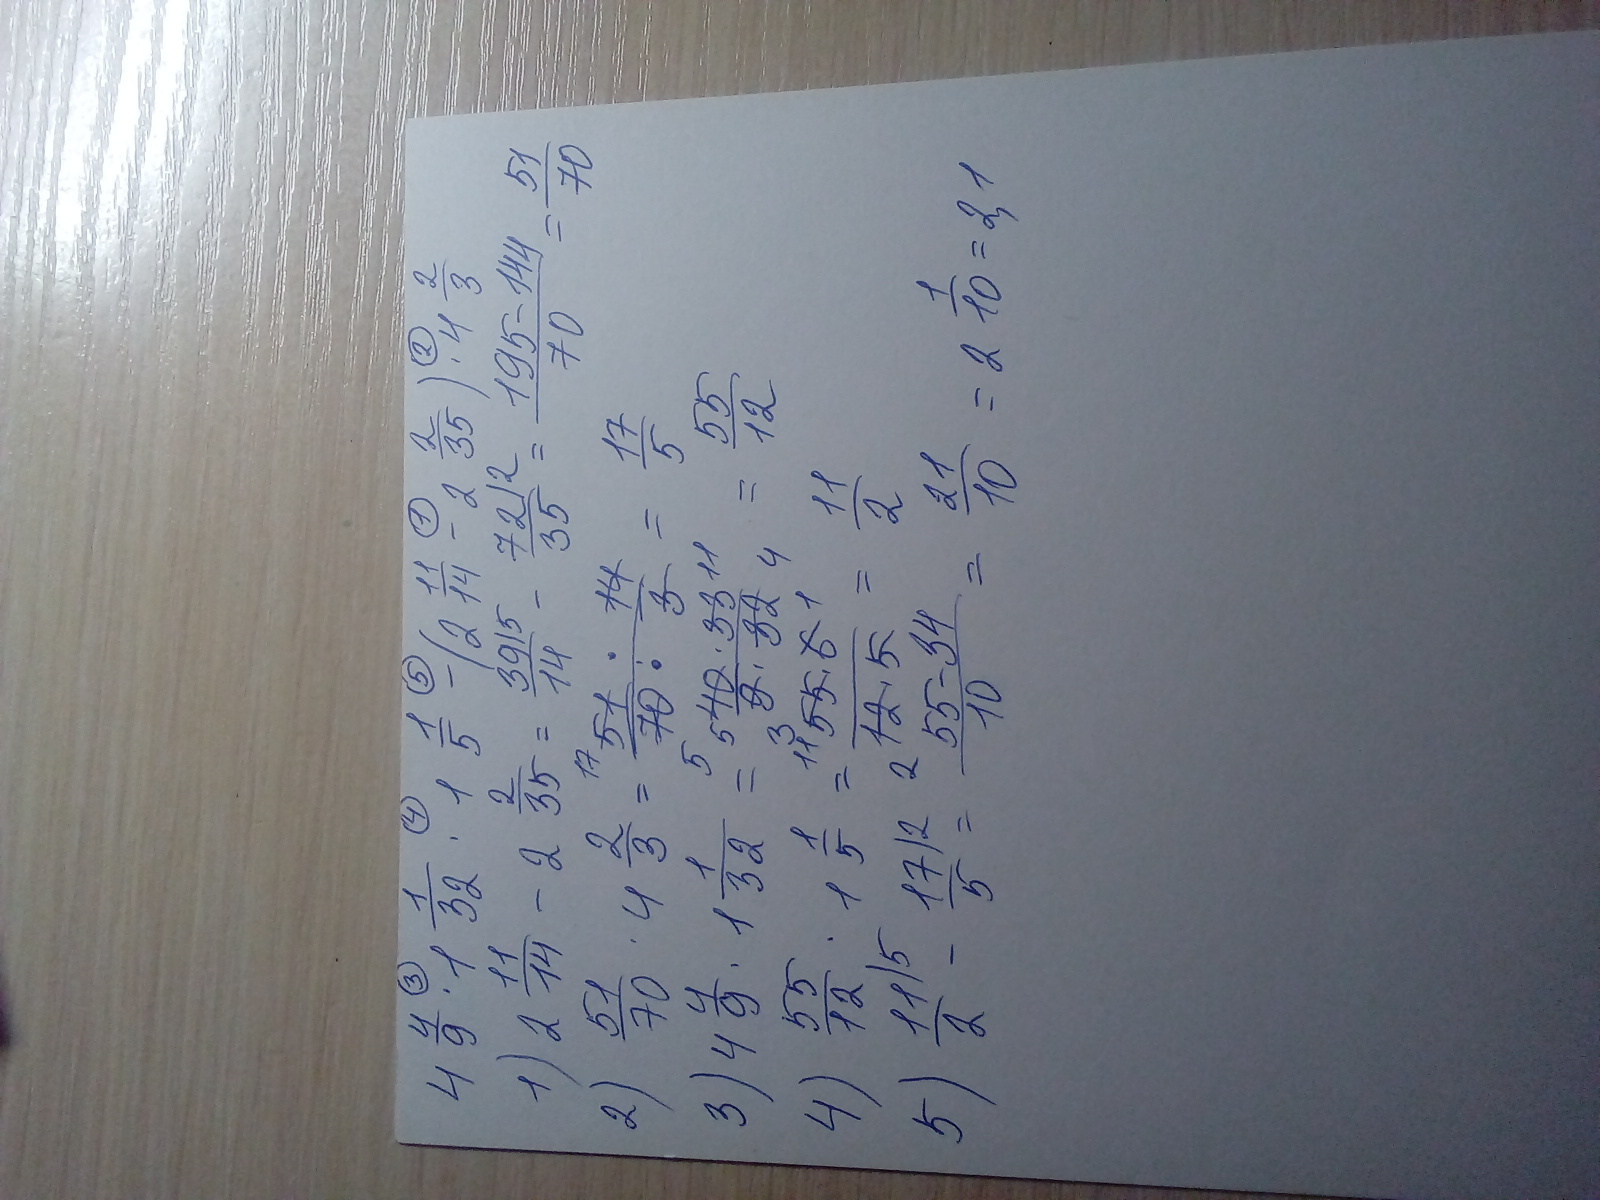 4 4/9 ③ · 1 1/32 ④ · 1 1/5 ⑤ - (2 11/14 ① - 2 2/35) ② · 4 2/3
1) 2 11/14 - 2 2/35 = 39|5/14 - 72|2/35 = 195-144/70 = 51/70
2) 51/70 · 4 2/3 = 17 51 · 14/70 · 3 = 17/5
3) 4 4/9 · 1 1/32 = 5 40 · 33 11/3 9 · 32 4 = 55/12
4) 55/12 · 1 1/5 = 11 55 · 6 1/2 12 · 5 = 11/2
5) 11|5/2 - 17|2/5 = 55-34/10 = 21/10 = 2 1/10 = 2,1